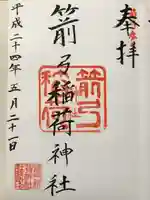 奉拝
箭弓稲荷神社
平成二十四年五月二十一日
箭弓